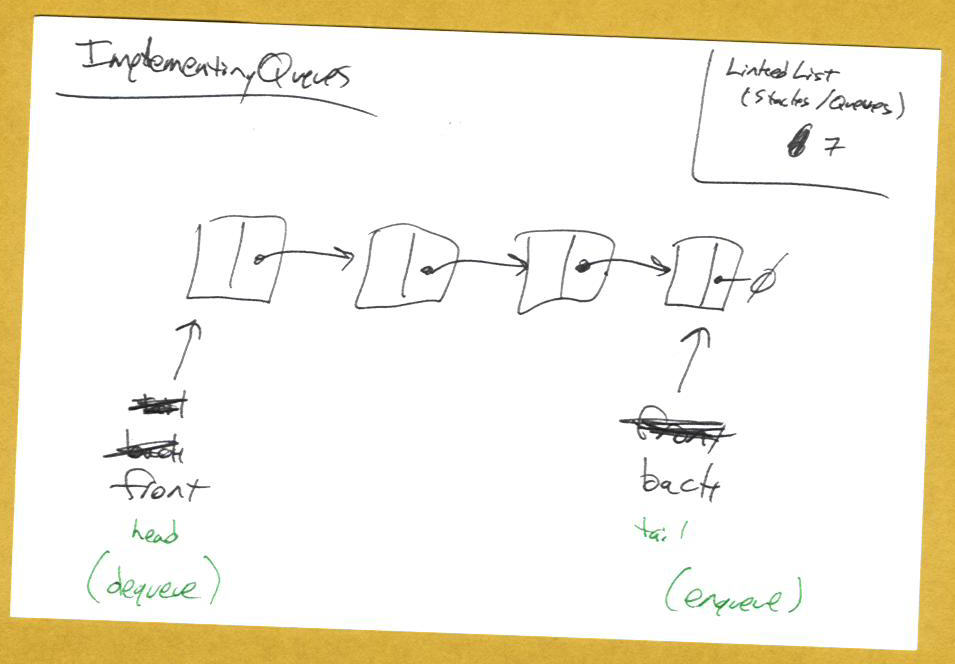 Implementing Queues
Linked List
(Stacks/Queues)
7
ø
tail
back
front
front
back
head
tail
(dequeue)
(enqueue)